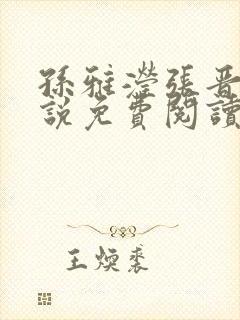 孫雅瀅張晉
說免費閱讀
王煥裘